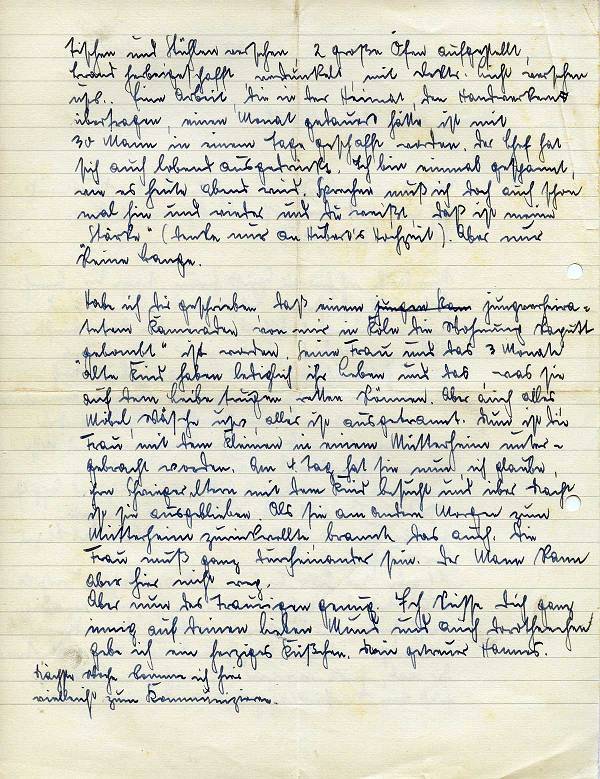 Tischen und Stühlen versehen 2 große Öfen aufgestellt,
herbeigeschafft verdunkelt, mit Licht versehen
usw.. Eine Arbeit, die in der Heimat, den Handwerkern
übertragen, einen Monat gedauert hätte ist mit
30 Mann in einem Tage geschafft worden. Der Chef hat
sich auch lobend ausgedrückt. Ich bin einmal gespannt,
wie es heute abend wird. Sprechen muß ich doch auch schon
mal hin und wieder und du weißt daß ist meine
"Stärke" (denke nur an Hubert's Hochzeit). Aber nur
keine Bange.
Habe ich dir geschrieben, daß einem jungen Kam jungverheira=
teten Kameraden von mir in Köln die Wohnung kaputt
gebombt" ist worden. Seine Frau und das 3 Monate
alte Kind haben lediglich ihr Leben und das, was sie
auf dem Leibe trugen retten können. Aber auch alles
Möbel, Wäsche usw, alles ist ausgebrannt. Nun ist die
Frau mit dem Kleinen in einem Mütterheim unter=
gebracht worden. Am 4. Tag hat sie nun, ich glaube,
ihre Schwiegereltern mit dem Kind besucht und über Nacht
ist sie ausgeblieben. Als sie am andern Morgen zum
Mütterheim zurückwollte brannte das auch. Die
Frau muß ganz durcheinander sein. Der Mann kann
aber hier nicht weg.
Aber nun des Traurigen genug. Ich küsse Dich ganz
innig auf deinen lieben Mund und auch
gebe ich ein herziges Küßchen. Dein getreuer Hannes.
Nächste Woche komme ich hier
vielleicht zum Kommunizieren.